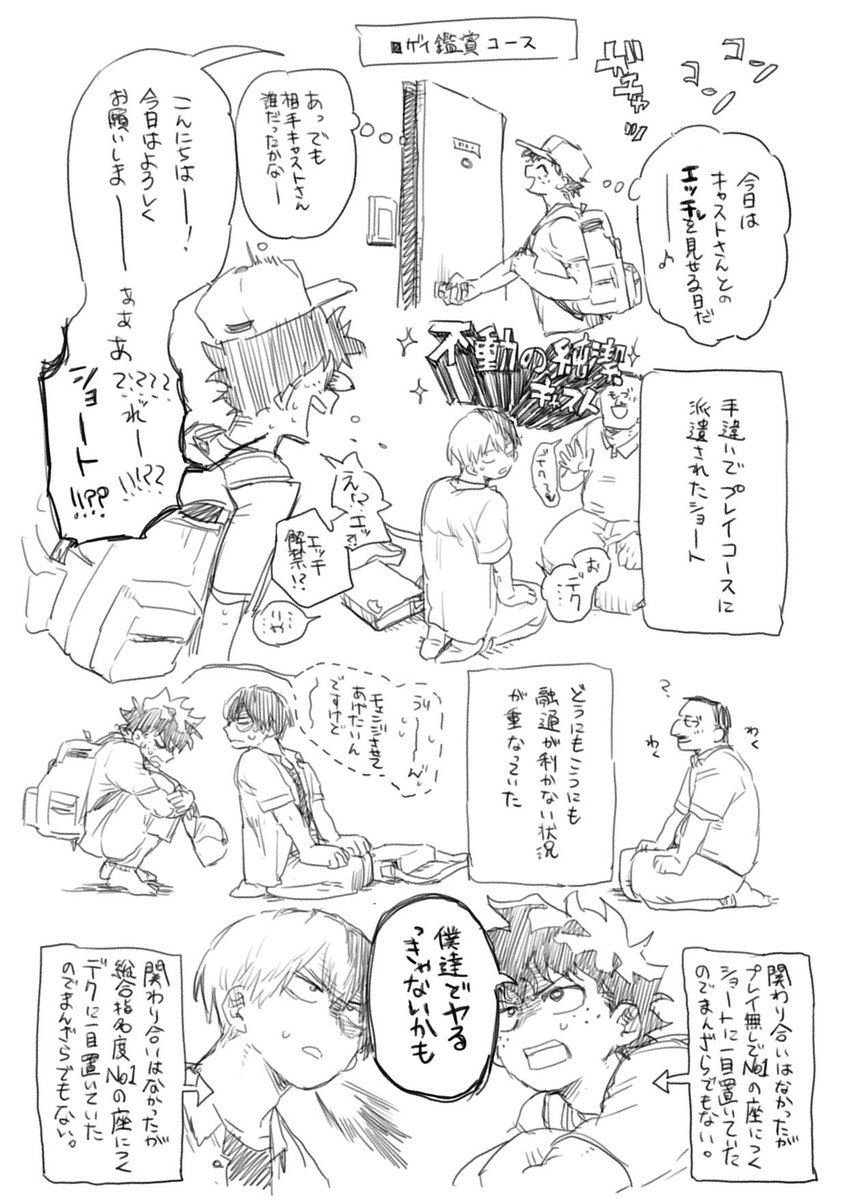 ■ゲイ鑑賞コース
コン
コン
ギュエャッ
今日は
キャストさんとの
エッチを見せる日だ
ーーー♪
あっでも
相手キャストさん
誰だったかなー
こんにちはーー！
今日はよろしく
お願いしまーーー
ぁぁぁ
で????
ぜれー
!!??
ショート!!??
手違いでプレイコースに
派遣されたショート
不動の純潔
キャスト
お
デク
え!?エッ?!
エッチ
解禁!?
…りゃ…
どうにもこうにも
融通が利かない状況
が重なっていた
うりーーん
チェンジさせて
あげたいん
ですけど
?
わく
わく
僕達でヤる
っきゃないかも
関わり合いはなかったが
プレイ無しでNo1の座につく
ショートに一目置いていた
のでまんざらでもない。
関わり合いはなかったが
総合指名度No1の座につく
デクに一目置いていた
のでまんざらでもない。